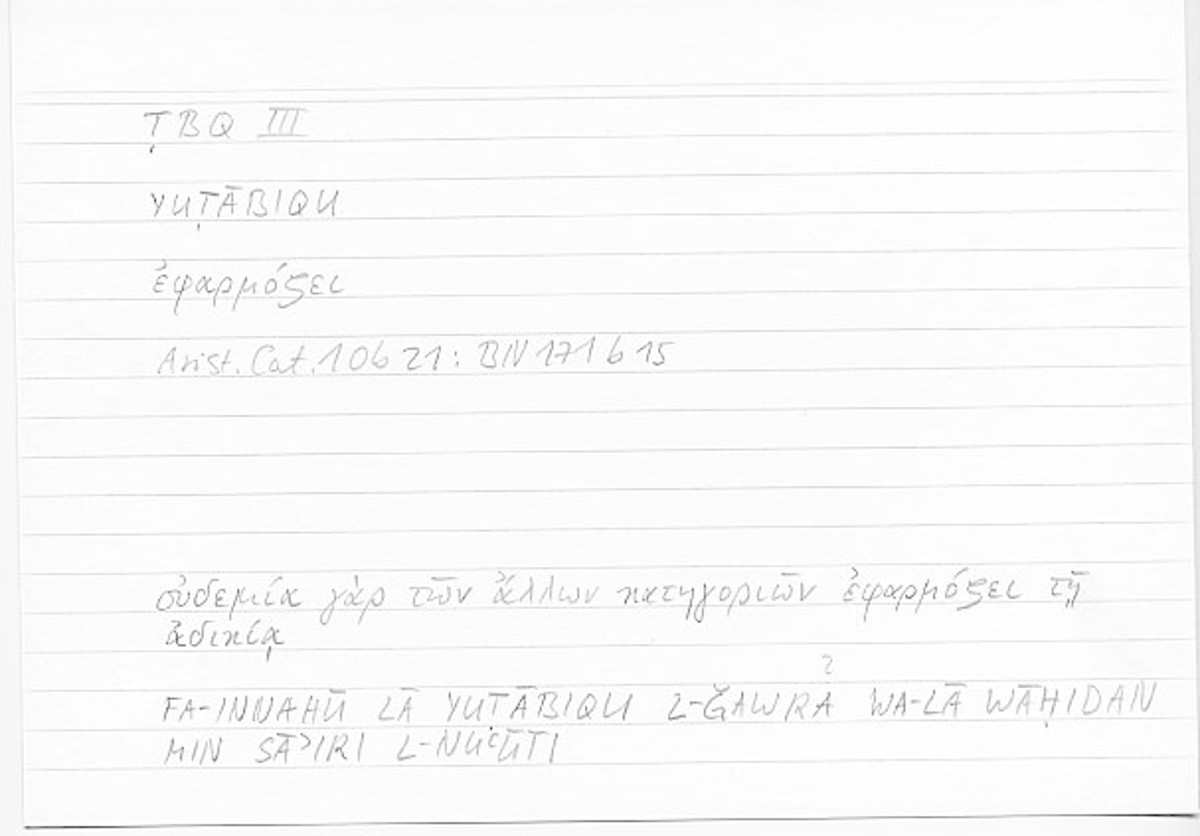 ṬBQ III
YUṬĀBIQU
ἐφαρμόζει
Arist. Cat. 10b21: BN 171b15
οὐδεμία γὰρ τῶν ἄλλων κατηγοριῶν ἐφαρμόζει τῇ
ἀδικίᾳ
?
FA-INNAHŪ LĀ YUṬĀBIQU L-ǦAWRA WA-LĀ WĀḤIDAN
MIN SĀʾIRI L-NUʿŪTI